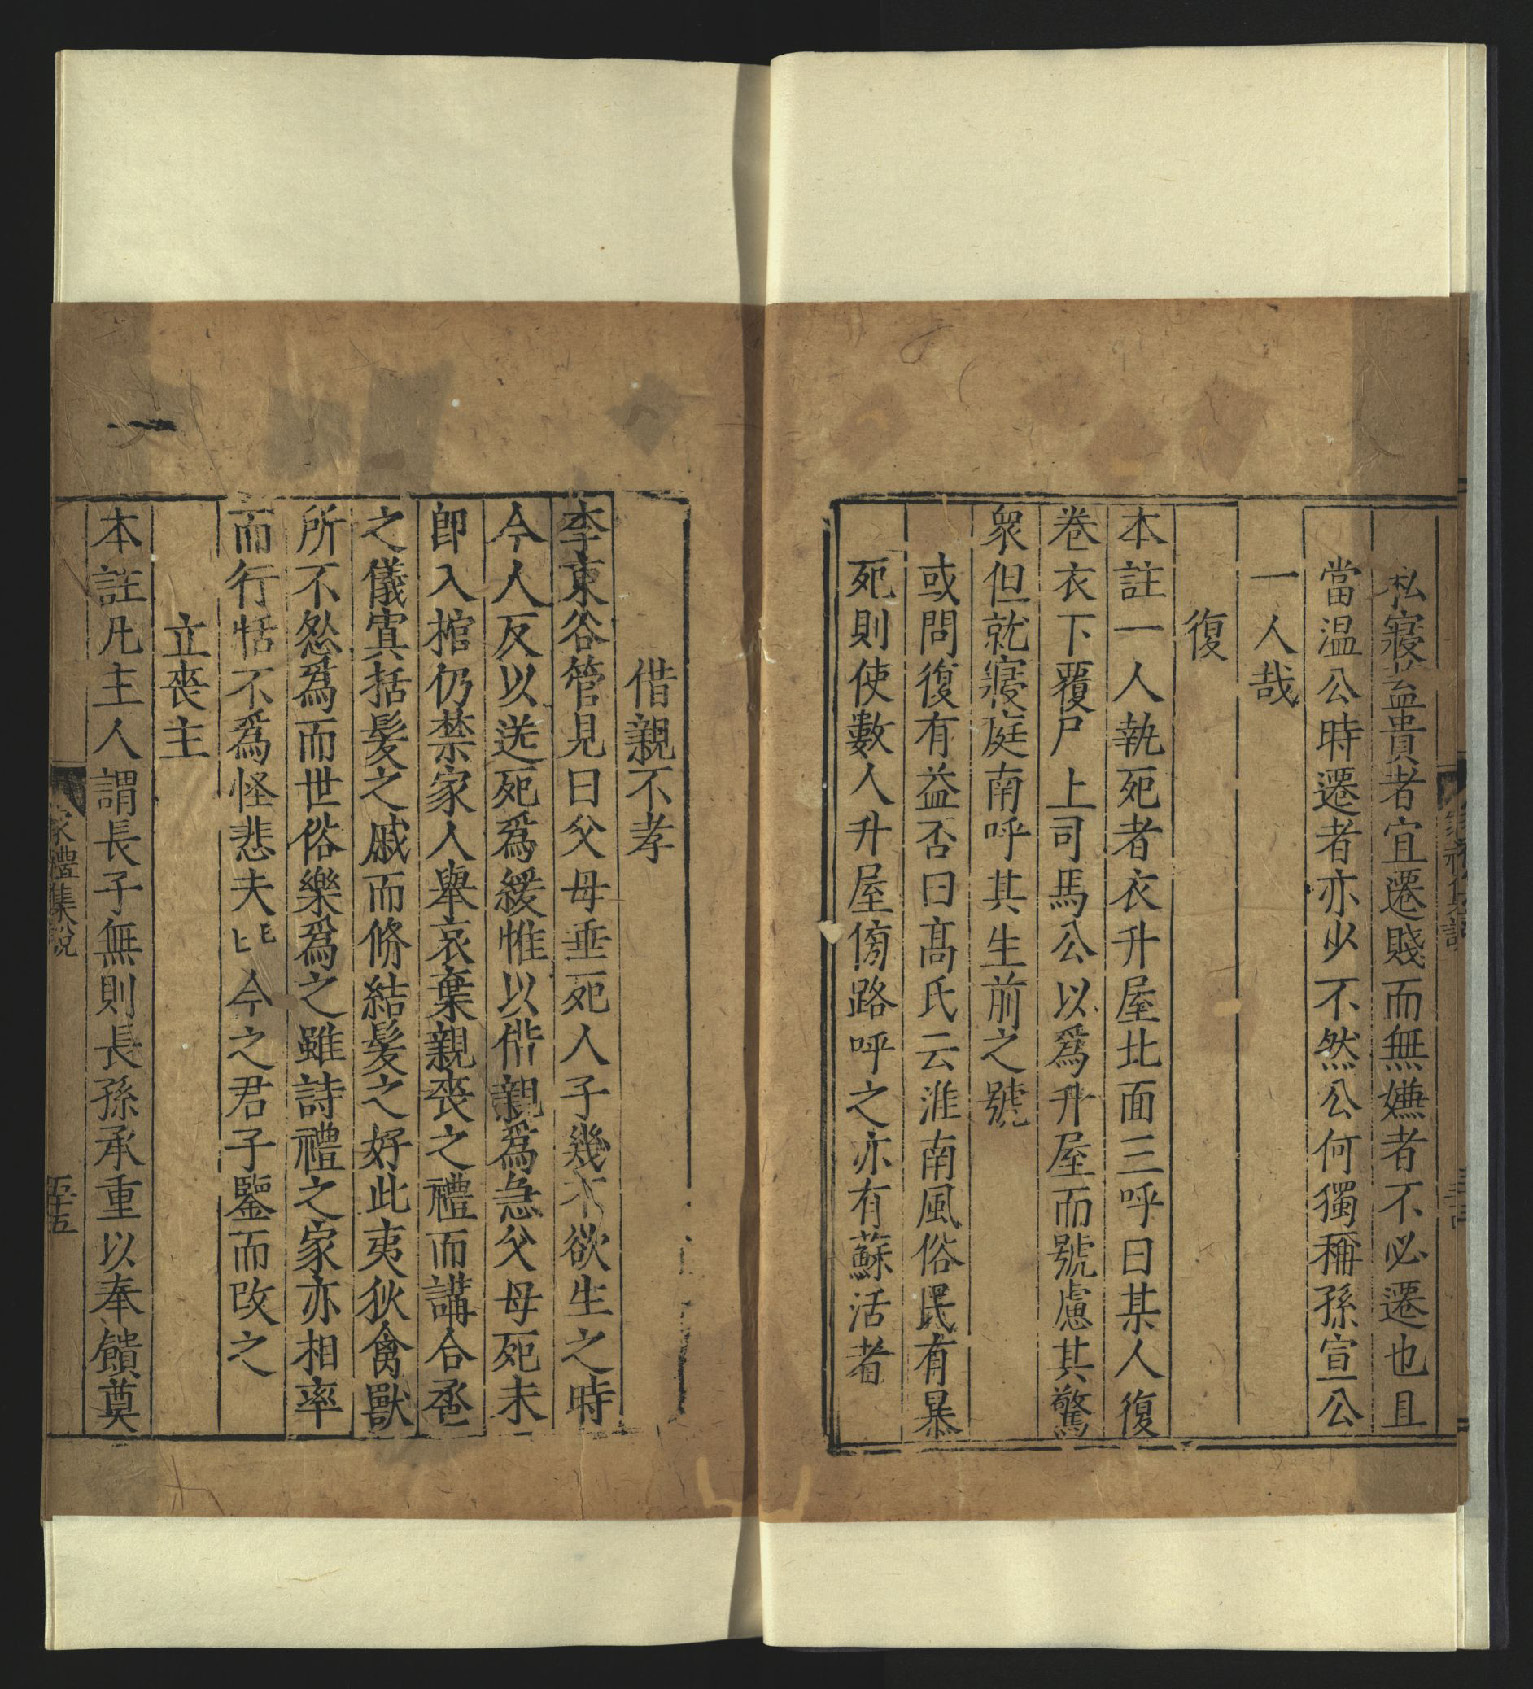 私寢盖貴者宜遷賤而無嫌者不必遷也且
當温公時遷者亦少不然公何獨稱孫宣公
一人哉
復
本註一人執死者衣升屋北面三呼曰某人復
卷衣下覆尸上司馬公以爲升屋而號慮其驚
衆但就寢庭南呼其生前之號
或問復有益否曰髙氏云淮南風俗民有暴
死則使數人升屋傍路呼之亦有蘇活者
偕親不孝
李東谷管見曰父母垂死人子幾不欲生之時
今人反以送死爲緩惟以偕親爲急父母死未
卽入棺仍禁家人舉哀棄親喪之禮而講合卺
之儀寘括髮之戚而脩結髮之好此夷狄禽獸
所不忍爲而世俗樂爲之雖詩禮之家亦相率
而行恬不爲怪悲夫 今之君子鑒而改之
立喪主
本註凡主人謂長子無則長孫承重以奉饋奠
家禮集說
五十五